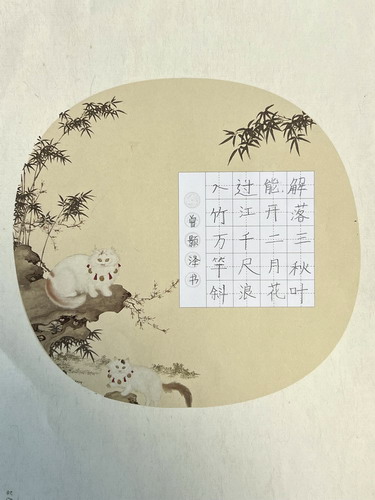 解落三秋叶
能开二月花
过江千尺浪
入竹万竿斜
曾颢泽书